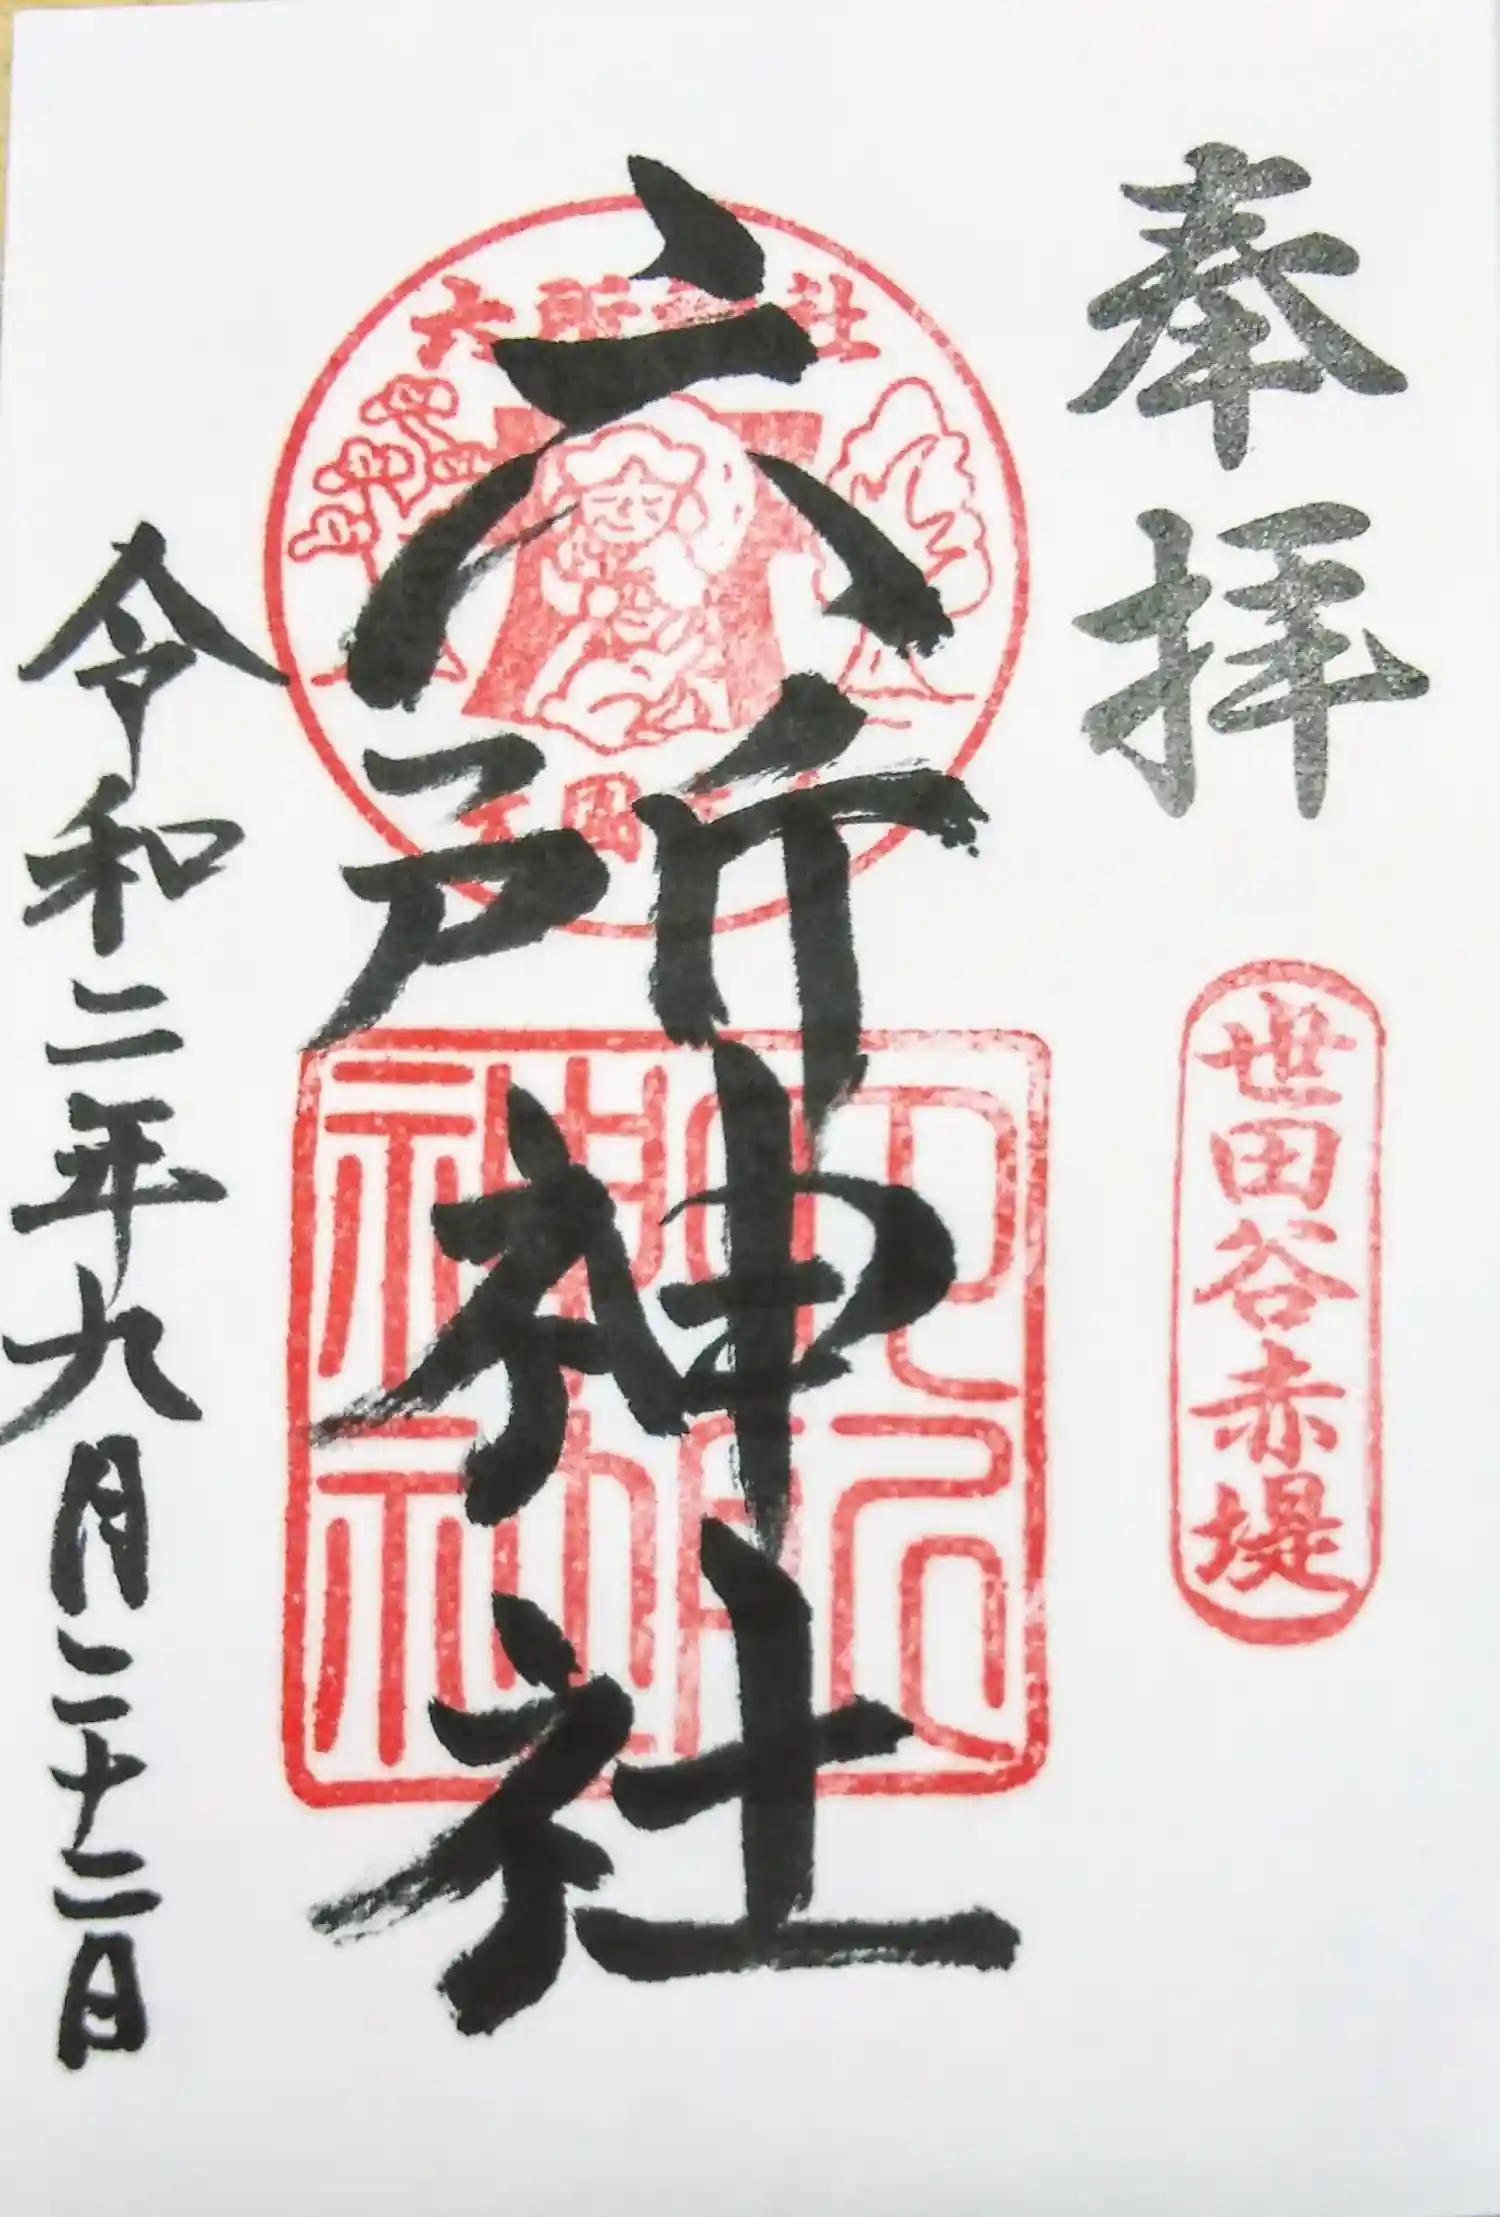 奉拝
世田谷赤堤
六所神社
六所神社
令和二年九月二十二日